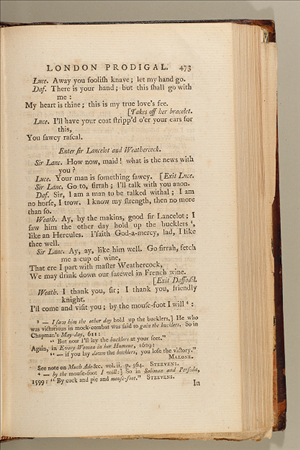 LONDON PRODIGAL. 473
Luce. Away you foolish knave; let my hand go.
Daf. There is your hand; but this shall go with
me:
My heart is thine; this is my true love's fee.
[Takes off her bracelet.
Luce. I'll have your coat stripp'd o'er your ears for
this,
You sawcy rascal.
Enter sir Lancelot and Weathercock.
Sir Lanc. How now, maid! what is the news with
you?
Luce. Your man is something sawcy. [Exit Luce.
Sir Lanc. Go to, sirrah; I'll talk with you anon.
Daf. Sir, I am a man to be talked withal; I am
no horse, I trow. I know my strength, then no more
than so.
Weath. Ay, by the makins, good sir Lancelot; I
saw him the other day hold up the bucklers,
like an Hercules. I'faith God-a-mercy, lad, I like
thee well.
Sir Lanc. Ay, ay, like him well. Go sirrah, fetch
me a cup of wine,
That ere I part with master Weathercock,
We may drink down our farewel in French wine.
[Exit Daffodil.
Weath. I thank you, sir; I thank you, friendly
knight.
I'll come and visit you; by the mouse-foot I will:
— I saw him the other day hold up the bucklers,] He who
was victorious in mock-combat was said to gain the bucklers. So in
Chapman's May-day, 1611:
"But now I'll lay the bucklers at your feet."
Again, in Every Woman in her Humour, 1609:
"— if you lay down the bucklers, you lose the victory."
MALONE.
See note on Much Ado &c. vol. ii. p. 364. STEEVENS.
— by the mouse-foot I will:] So in Soliman and Perseda,
1599: "By cock and pie and mouse-foot." STEEVENS.
In